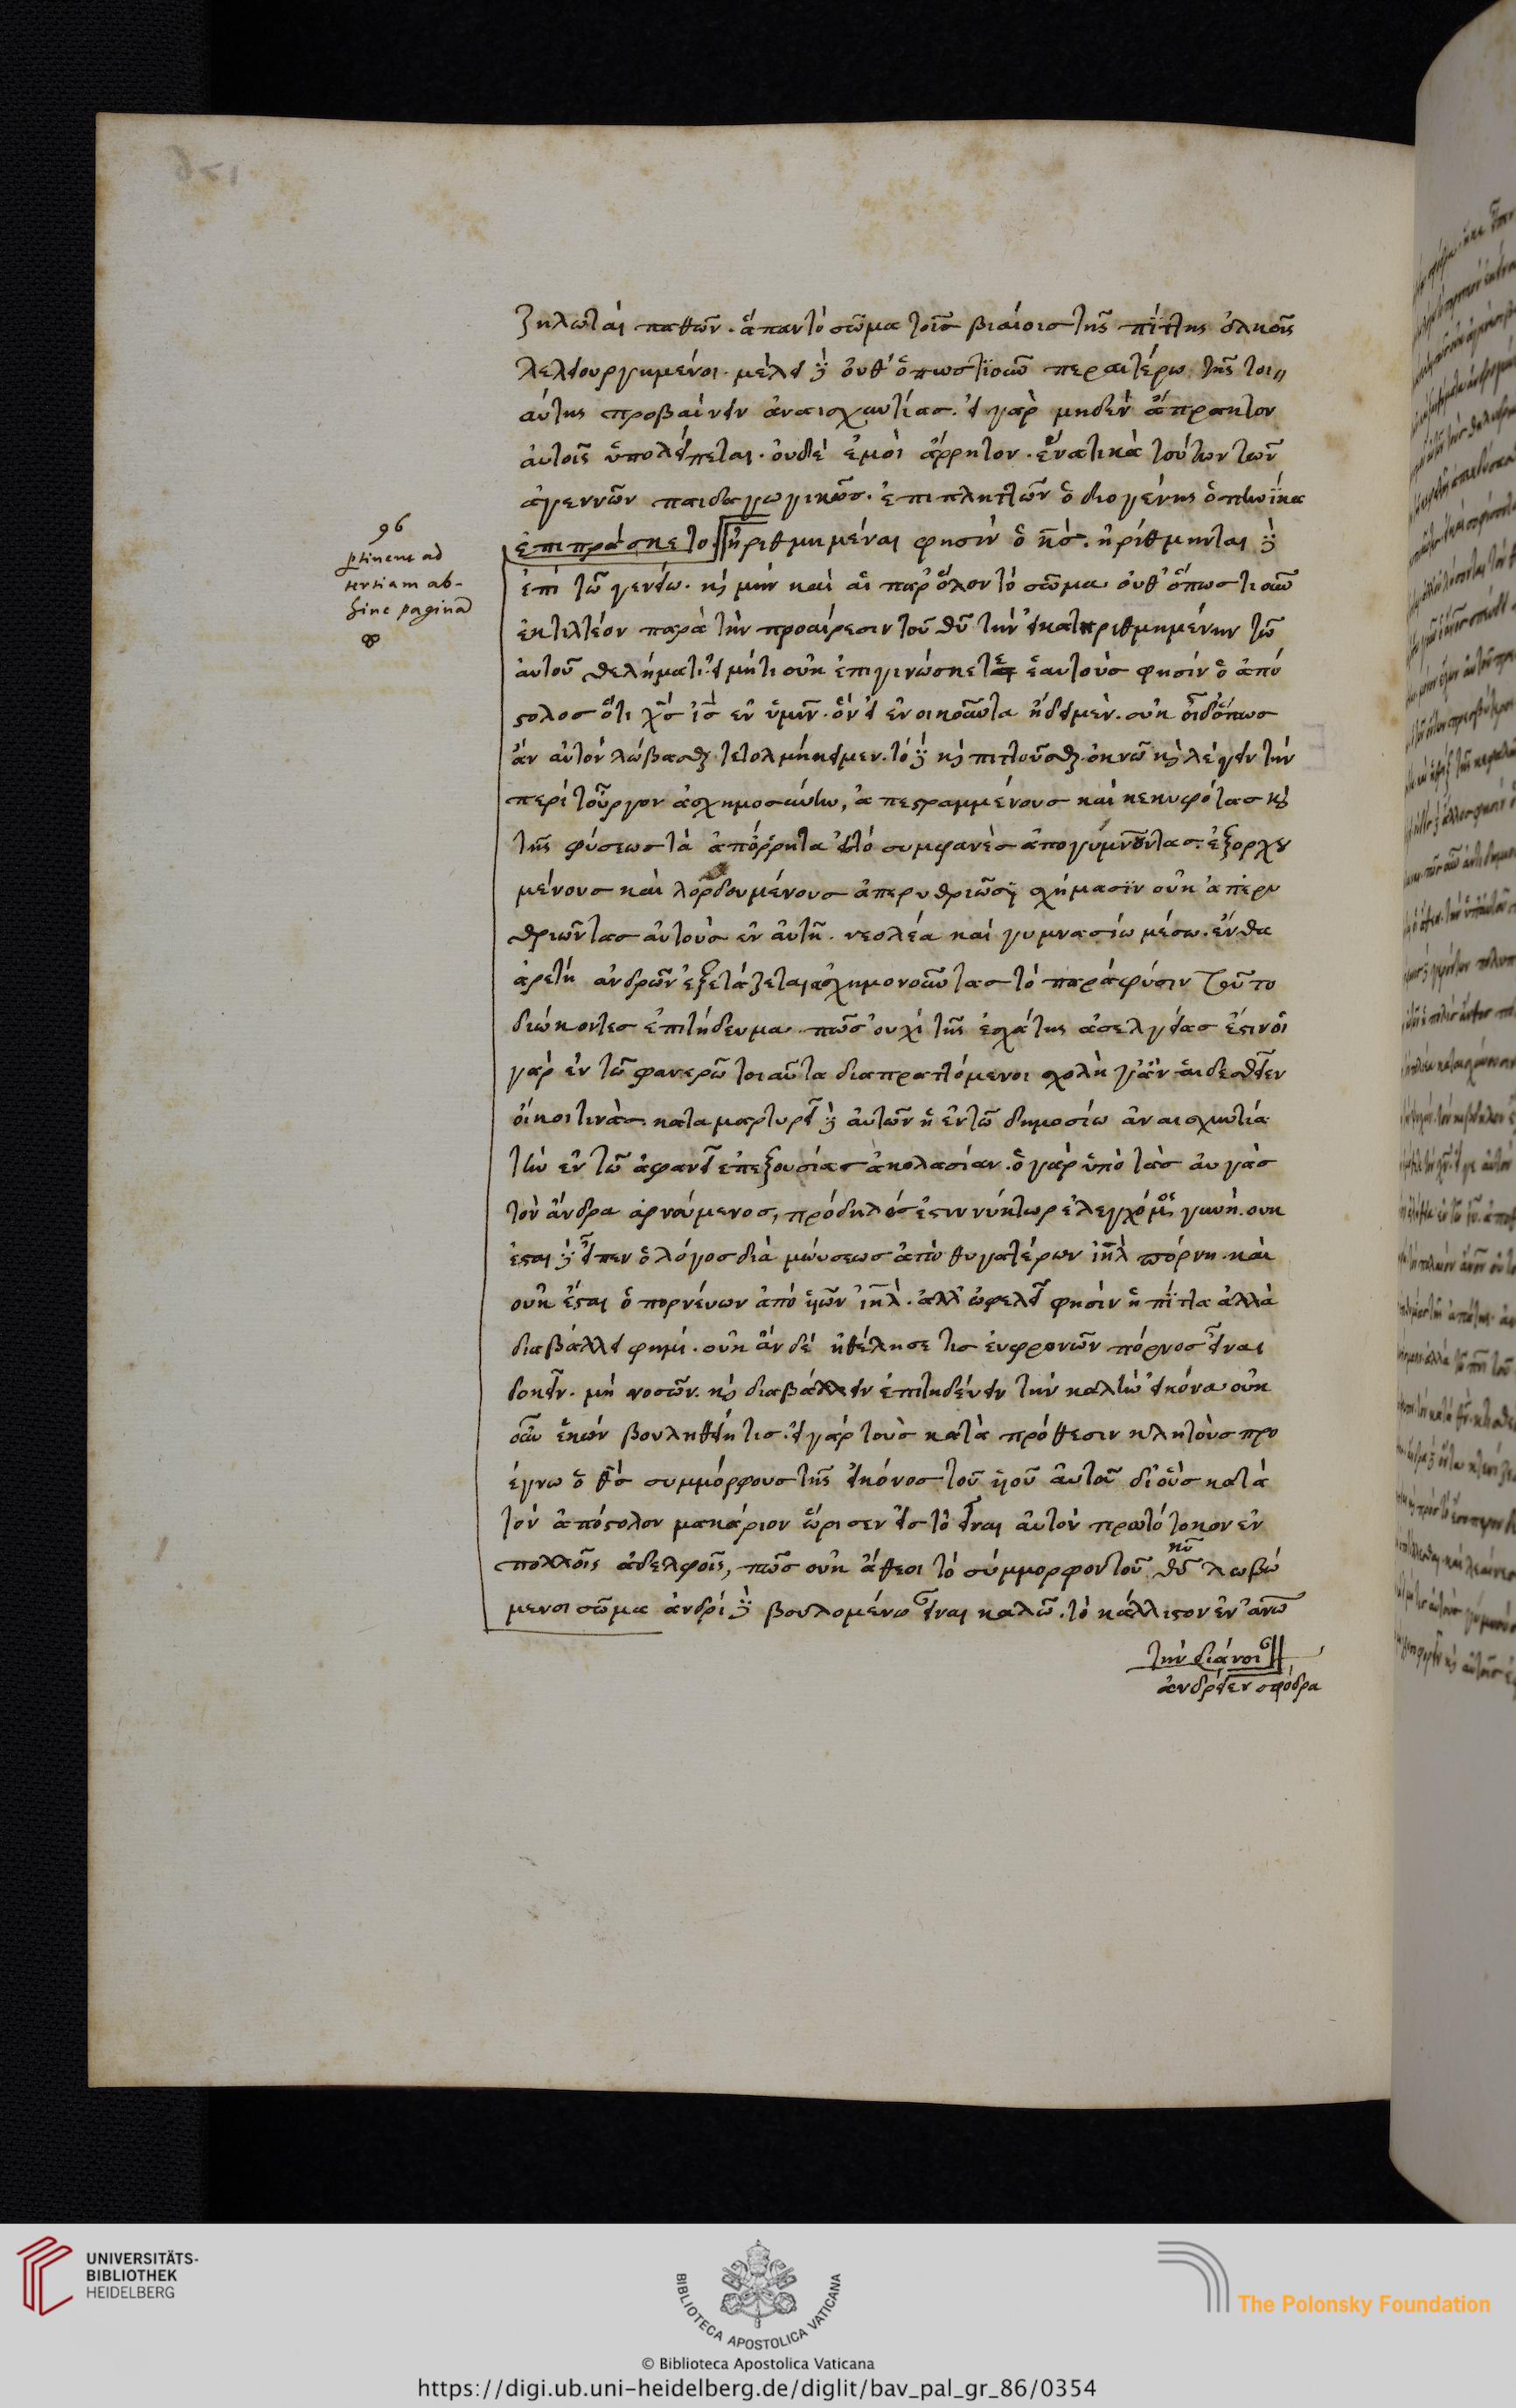 ζηλωταὶ παθῶν. ἅπαν τὸ σῶμα τοῖς βιαίοις τῆς πίττης ὁλκοῖς
λελειουργημένοι. μέλει δὲ οὐθ' ὁπωστιοῦν περαιτέρω τῆς τοι
αύτης προβαίνειν ἀναισχυντίας. εἰ γὰρ μηδὲν ἄπρακτον
αὐτοῖς ὑπολείπεται. οὐδὲ ἐμοὶ ἄρρητον. ἕνα τινὰ τούτων τῶν
ἀγεννῶν παιδαγωγικῶς. ἐπιπλήττων ὁ διογένης ὁπηνίκα
ἐπιπράσκετο. ἠριθμημέναι φησὶν ὁ κς. ἠρίθμηνται δὲ
ἐπὶ τῷ γενείῳ. καὶ μὴν καὶ αἱ παρ' ὅλον τὸ σῶμα οὐθ' ὁπωστιοῦν
ἐκτιλτέον παρὰ τὴν προαίρεσιν τοῦ θυ τὴν ἐγκατηριθμημένην τῷ
αὐτοῦ θελήματι. εἰ μήτι οὐκ ἐπιγινώσκετε ἑαυτοὺς φησὶν ὁ ἀπό
στολος ὅτι χς ις ἐν ὑμῖν. ὃν εἰ ἐνοικοῦντα ᾔδειμεν. οὐκ οἶδ' ὅπως
ἂν αὐτὸν λωβᾶσθαι τετολμήκειμεν. τὸ δὲ καὶ πιττοῦσθαι. ὀκνῶ καὶ λέγειν τὴν
περὶ τοὖργον ἀσχημοσύνην, ἀπεστραμμένους καὶ κεκυφότας καὶ
τῆς φύσεως τὰ ἀπόρρητα εἰς τὸ συμφανὲς ἀπογυμνοῦντας. ἐξορχου
μένους καὶ λορδουμένους ἀπερυθριῶσι σχήμασιν οὐκ ἀπερυ
θριῶντας αὐτοὺς ἐν αὐτῇ. νεολέα καὶ γυμνασίω μέσω. ἔνθα
ἀρετὴ ἀνδρῶν ἐξετάζεται ἀσχημονοῦντας τὸ παράφύσιν τοῦτο
διώκοντες ἐπιτήδευμα. πῶς οὐχὶ τῆς ἐσχάτης ἀσελγείας ἐστιν οἱ
γὰρ ἐν τῷ φανερῷ τοιαῦτα διαπραττόμενοι σχολῇ γ' ἂν αἰδεσθεῖεν
οἴκοι τινὰς. καταμαρτυρεῖ δὲ αὐτῶν ἡ ἐν τῷ δημοσίω ἀναισχυντία
τὴν ἐν τῷ ἀφανεῖ ἐπεξουσίας ἀκολασίαν. ὁ γὰρ ὑπὸ τὰς αὐγὰς
τὸν ἄνδρα ἀρνούμενος, πρόδηλός ἐστιν νύκτωρ ἐλεγχόμενος γυνή. οὐκ
ἔσται δὲ εἶπεν ὁ λόγος διὰ μωυσέως ἀπὸ θυγατέρων ιηλ πόρνη. καὶ
οὐκ ἔσται ὁ πορνεύων ἀπὸ υἱῶν ιηλ. ἀλλ' ὠφελεῖ φησὶν ἡ πίττα ἀλλὰ
διαβάλλει φημί. οὐκ ἂν δὲ ἠθέλησέ τις εὐφρονῶν πόρνος εἶναι
δοκεῖν. μὴ νοσῶν. καὶ διαβάλλειν ἐπιτηδεύειν τὴν καλὴν εἰκόνα οὐκ
οὖν ἑκὼν βουληθείη τις. εἰ γὰρ τοὺς κατὰ πρόθεσιν κλητοὺς προ
έγνω ὁ θς συμμόρφους τῆς εἰκόνος τοῦ υἱοῦ αὐτοῦ δι' οὓς κατὰ
τὸν ἀπόστολον μακάριον ὥρισεν εἰς τὸ εἶναι αὐτὸν πρωτότοκον ἐν
πολλοῖς ἀδελφοῖς, πῶς οὐκ ἄθεοι τὸ σύμμορφον τοῦ θυ κυ λωβώ
μενοι σῶμα ἀνδρὶ δὲ βουλομένω εἶναι καλῶ. τὸ κάλλιστον ἐν ανω
τὴν διάνοι
ἀνδρεῖεν σφόδρα
96
ptinent ad
tertiam ab-
hinc pagina
UNIVERSITÄTS-
BIBLIOTHEK
HEIDELBERG
BIBLIOTECA APOSTOLICA VATICANA
© Biblioteca Apostolica Vaticana
The Polonsky Foundation
https://digi.ub.uni-heidelberg.de/diglit/bav_pal_gr_86/0354